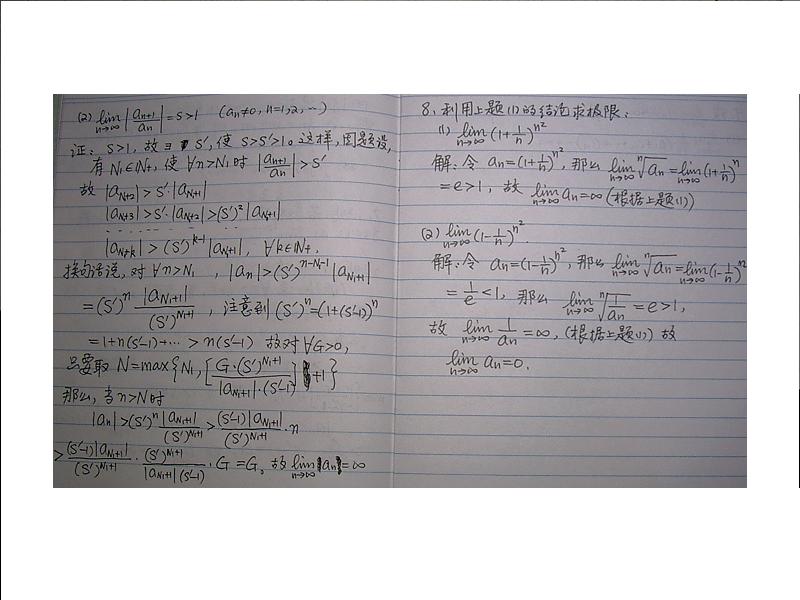 (2) lim n→∞ |an+1/an| = S>1 (an≠0, n=1,2,…)
证: S>1, 故∃ S′, 使 S>S′>1。这样, 因题设,
有 N1∈N+, 使 ∀n>N1 时 |an+1/an| > S′
故 |aN1+2| > S′·|aN1+1|
|aN1+3| > S′·|aN1+2| > (S′)²|aN1+1|
………
|aN1+k| > (S′)^(k-1) |aN1+1|, ∀k∈N+.
换句话说, 对 ∀n>N1, |an| > (S′)^(n-N1-1) |aN1+1|
= (S′)^n |aN1+1|/(S′)^(N1+1), 注意到 (S′)^n = (1+(S′-1))^n
= 1+n(S′-1)+… > n(S′-1) 故对 ∀G>0,
只要取 N=max{N1, [G·(S′)^(N1+1)/(|aN1+1|·(S′-1))]+1}
那么, 当 n>N 时
|an| > (S′)^n |aN1+1|/(S′)^(N1+1) > (S′-1)|aN1+1|/(S′)^(N1+1)·n
> (S′-1)|aN1+1|/(S′)^(N1+1)·(S′)^(N1+1)/(|aN1+1|(S′-1))·G = G。故 lim n→∞ an = ∞
8、利用上题(1)的结论求极限:
(1) lim n→∞ (1+1/n)^(n²)
解: 令 an=(1+1/n)^(n²), 那么 lim n→∞ ⁿ√an = lim n→∞ (1+1/n)^n
= e>1, 故 lim n→∞ an=∞ (根据上题(1))
(2) lim n→∞ (1-1/n)^(n²).
解: 令 an=(1-1/n)^(n²), 那么 lim n→∞ ⁿ√an = lim n→∞ (1-1/n)^n
= 1/e <1, 那么 lim n→∞ ⁿ√(1/an) = e>1,
故 lim n→∞ 1/an = ∞, (根据上题(1)) 故
lim n→∞ an=0.